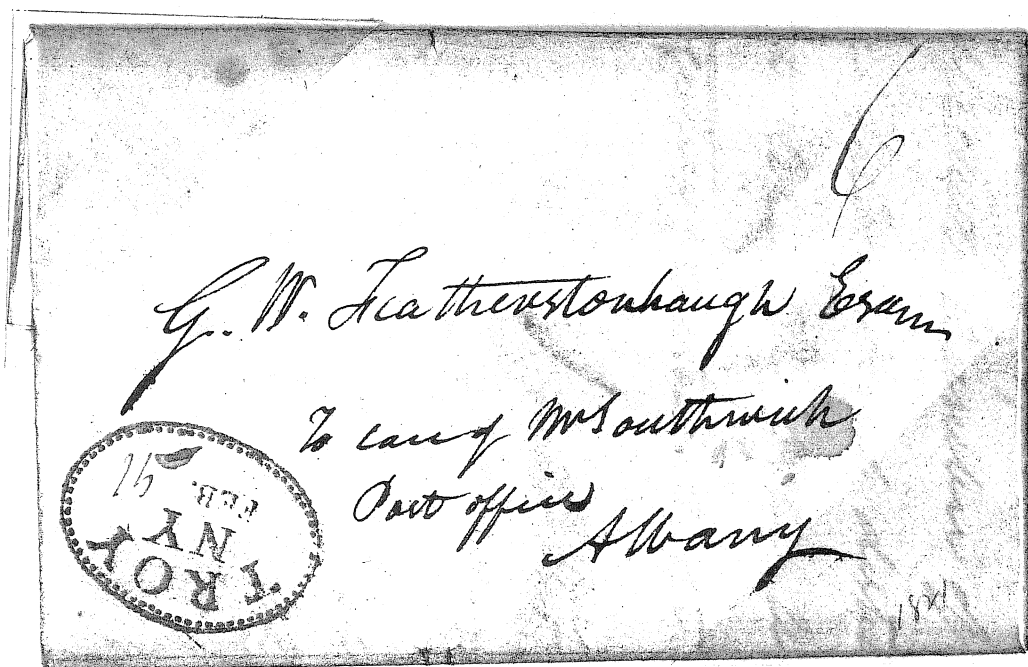 6
G. W. Featherstonhaugh Esqr.
To care of Mr Southwick
Post office
Albany
TROY
NY
FEB.
1821